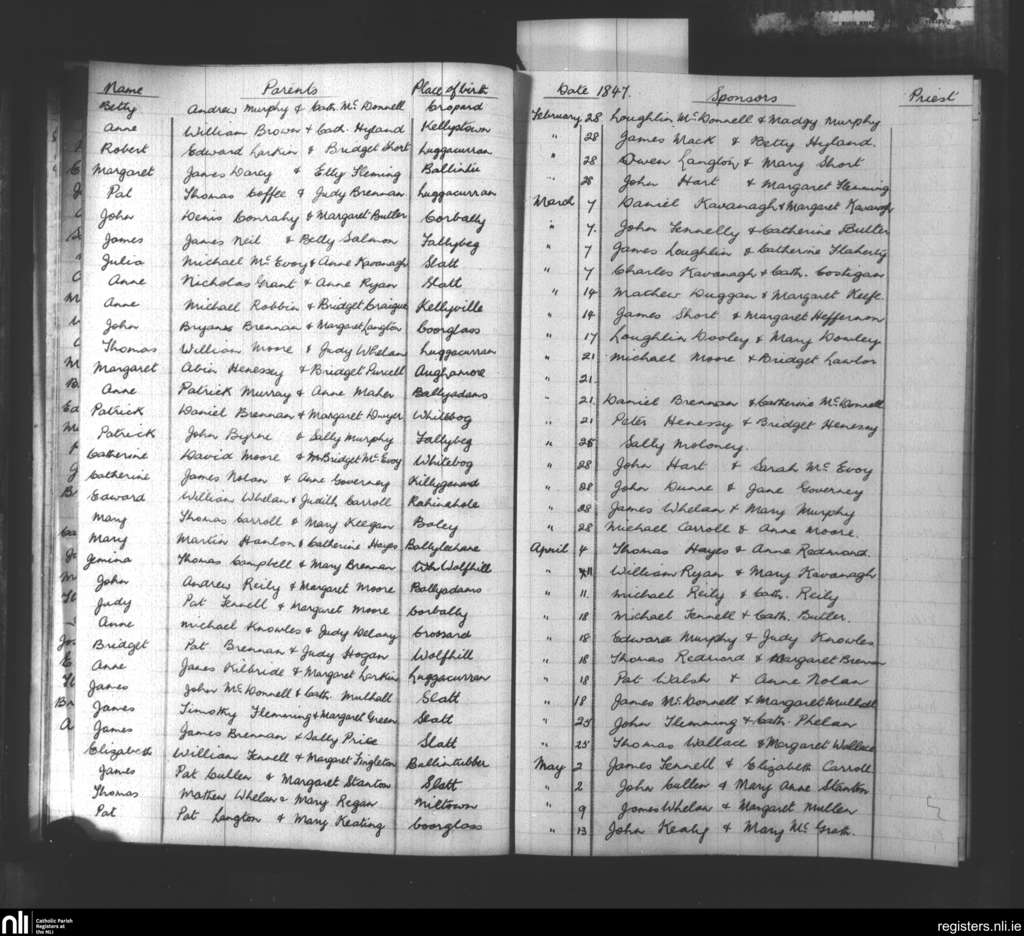 Name Parents Place of birth Date 1847. Sponsors Priest
Betty Andrew Murphy & Cath. McDonnell Cropard February 28 Loughlin McDonnell & Madgy Murphy
Anne William Brown & Cath. Hyland Kellystown " 28 James Mack & Betty Hyland.
Robert Edward Larkin & Bridget Short Luggacurran " 28 Owen Langton & Mary Short
Margaret James Darcy & Elly Fleming Ballintu " 28 John Hart & Margaret Flemming
Pat Thomas Coffee & Judy Brennan Luggacurran March 7 Daniel Kavanagh & Margaret Kavanagh
John Denis Conrahy & Margaret Butler Corbally " 7. John Fennelly & Catherine Butler
James James Neil & Betty Salmon Tallybeg " 7 James Loughlin & Catherine Flaherty
Julia Michael McEvoy & Anne Kavanagh Slatt " 7 Charles Kavanagh & Cath. Costigan
Anne Nicholas Grant & Anne Ryan Slatt " 14 Mathew Duggan & Margaret Keefe.
Anne Michael Robbin & Bridget Craigue Kellyville " 14 James Short & Margaret Heffernon
John Bryan Brennan & Margaret Langton Coorglass " 17 Loughlin Dooley & Mary Dowley
Thomas William Moore & Judy Whelan Luggacurran " 21 Michael Moore & Bridget Lawlor
Margaret Abin Henessy & Bridget Purcell Aughamore " 21
Anne Patrick Murray & Anne Maher Ballyadams " 21. Daniel Brennan & Catherine McDonnell
Patrick Daniel Brennan & Margaret Dwyer Whitebog " 21 Peter Henessy & Bridget Henessy
Patrick John Byrne & Sally Murphy Tallybeg " 25 Sally Moloney.
Catherine David Moore & Bridget McEvoy Whitebog " 28 John Hart & Sarah McEvoy
Catherine James Nolan & Anne Governey Killyganard " 28 John Dunne & Jane Governey
Edward William Whelan & Judith Carroll Rahinehole " 28 James Whelan & Mary Murphy
Mary Thomas Carroll & Mary Keegan Boley " 28 Michael Carroll & Anne Moore.
Mary Martin Hanlon & Catherine Hayes Ballylechane April 4 Thomas Hayes & Anne Redmond.
Jemina Thomas Campbell & Mary Brennan Wolfhill " 11 William Ryan & Mary Kavanagh
John Andrew Reily & Margaret Moore Ballyadams " 11. Michael Reily & Cath. Reily
Judy Pat Fennell & Margaret Moore Corbally " 18 Michael Fennell & Cath. Butler.
Anne Michael Knowles & Judy Delany Crossard " 18 Edward Murphy & Judy Knowles
Bridget Pat Brennan & Judy Hogan Wolfhill " 18 Thomas Redmond & Margaret Brennan
Anne James Kilbride & Margaret Larkin Luggacurran " 18 Pat Walsh & Anne Nolan
James John McDonnell & Cath. Mulhall Slatt " 18 James McDonnell & Margaret Mulhall
James Timothy Flemming & Margaret Green Slatt " 25 John Flemming & Cath. Phelan
James James Brennan & Sally Price Slatt " 25 Thomas Wallace & Margaret Wallace
Elizabeth William Fennell & Margaret Singleton Ballintubber May 2 James Fennell & Elizabeth Carroll
James Pat Cullen & Margaret Stanton Slatt " 2 John Cullen & Mary Anne Stanton
Thomas Mathew Whelan & Mary Regan Miltown " 9 James Whelan & Margaret Mullen
Pat Pat Langton & Mary Keating Coorglass " 13 John Kealy & Mary McGrath.
nli Catholic Parish Registers at the NLI
registers.nli.ie